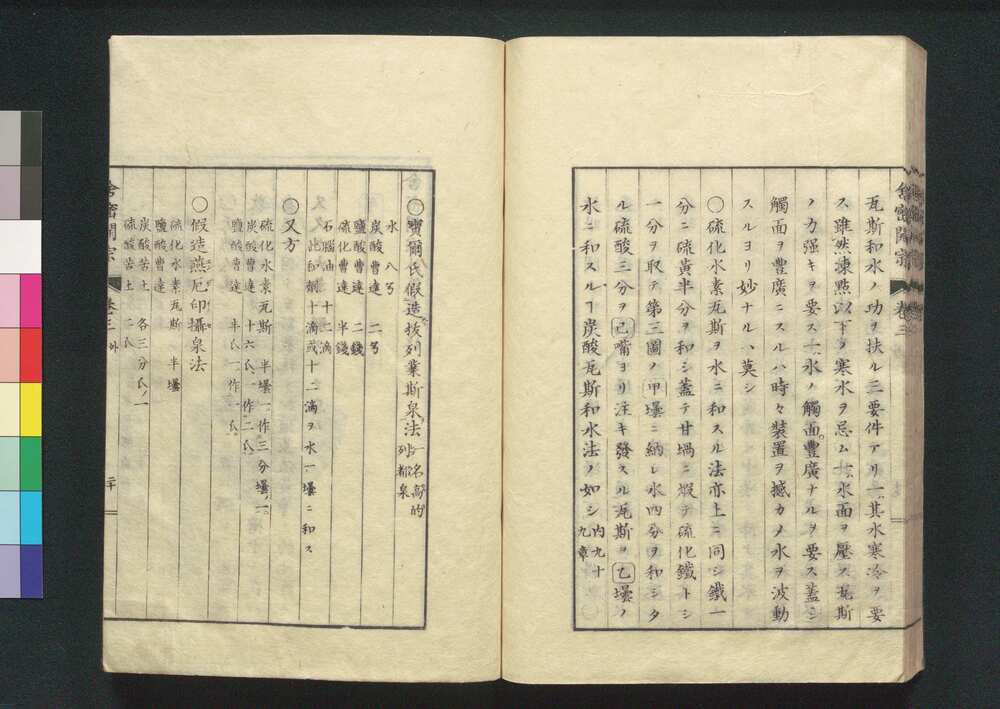 舎密開宗 卷三
瓦斯和水ノ功ヲ扶ル三要件アリ一其水寒冷ヲ要
ス雖然凍點以下ノ寒水ヲ忌ム 水面ヲ壓ス瓦斯
ノ力強キヲ要ス 水ノ觸面豊廣ナルヲ要ス蓋シ
觸面ヲ豊廣ニスルハ時々装置ヲ撼カメ水ヲ波動
スルヨリ妙ナルハ莫シ
〇硫化水素瓦斯ヲ水ニ和スル法亦上ニ同シ鐵一
分ニ硫黄半分ヲ和シ蓋テ甘堝ニ煆テ硫化鐵トシ
一分ヲ取テ第三圖ノ甲壜ニ納レ水四分ヲ和シタ
ル硫酸三分ヲ己嘴ヨリ注キ發スル瓦斯ヲ乙壜ノ
水ニ和スルヿ炭酸瓦斯和水法ノ如シ内九十
九章
爾氏假造拔列業斯泉法一名高的
列都泉
水 八
炭酸曹達 二
鹽酸曹達 二錢
硫化曹達 半錢
石腦油 十二滴
十滴或十二滴ヲ水一壜ニ和ス
又方
硫化水素瓦斯 半壜一作三分壜ノ一
炭酸曹達 十六氏一作二氏
鹽酸曹達 半氏一作一氏
〇假造燕厄印攝泉法
硫化水素瓦斯 半壜
鹽酸曹達
炭酸苦土 各三分氏ノ一
硫酸苦土 二氏
舎密開宗 卷三 外 二十